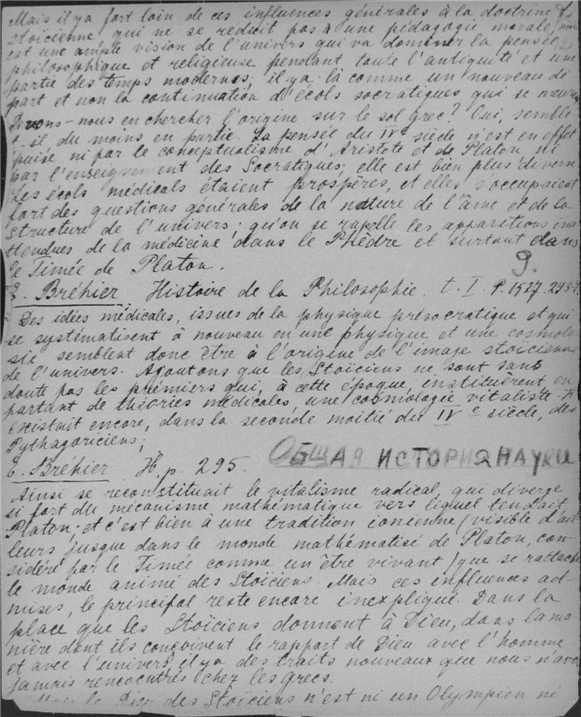 Mais il y a fort loin de ces influences générales à la doctrine
stoïcienne, qui ne se réduit pas à une pédagogie morale, mais
est une ample vision de l'univers qui va dominer la pensée
philosophique et religieuse pendant toute l'antiquité et une
partie des temps modernes; il y a là comme un nouveau dé
part et non la continuation d'écols socratiques qui se meure
Devons-nous en chercher l'origine sur le sol grec? Oui, semble
t-il du moins en partie. La pensée du IVe siècle n'est en effet
puisé ni par le conceptualisme d'Aristote et de Platon ni
par l'enseignement des Socratiques; elle est bien plus divers
Les écols médicals étaient prospères, et elles s'occupaient
fort des questions générales de la nature de l'âme et de la
structure de l'univers; qu'on se rapelle les apparitions ina
ttendues de la médicine dans le Phèdre et surtout dans
le Timée de Platon.
9.
Bréhier Histoire de la Philosophie. t. I P.
Des idées médicales, issues de la physique présocratique et qui
se systématisent à nouveau en une physique et une cosmolo
gie semblent donc être à l'origine de l'image stoïcienne
de l'univers. Ajoutons que les Stoïciens ne sont sans
doute pas les premiers qui, à cette époque, constituèrent en
partant de théories médicales une cosmologie vitaliste. Il
existait encore, dans la seconde moitié du IVe siècle, des
Pythagoriciens;
6. Bréhier H p. 295.
ОБЩАЯ ИСТОРИЯ НАУКИ
Ainsi se reconstituait le vitalisme radical, qui diverge
si fort du mécanisme mathématique vers lequel tendait
Platon; et c'est bien à une tradition ionienne (visible d'ail
leurs jusque dans le monde mathématisé de Platon, con-
sidéré par le Timée comme un être vivant) que se rattache
le monde animé des Stoïciens. Mais ces influences ad-
mises, le principal reste encore inexpliqué. Dans la
place que les Stoïciens donnent à Dieu, dans la ma
nière dont ils conçoivent le rapport de Dieu avec l'homme
et avec l'univers, il y a des traits nouveaux que nous n'avo
jamais rencontrés chez les grecs.
le Dieu des Stoïciens n'est ni un Olympien ni